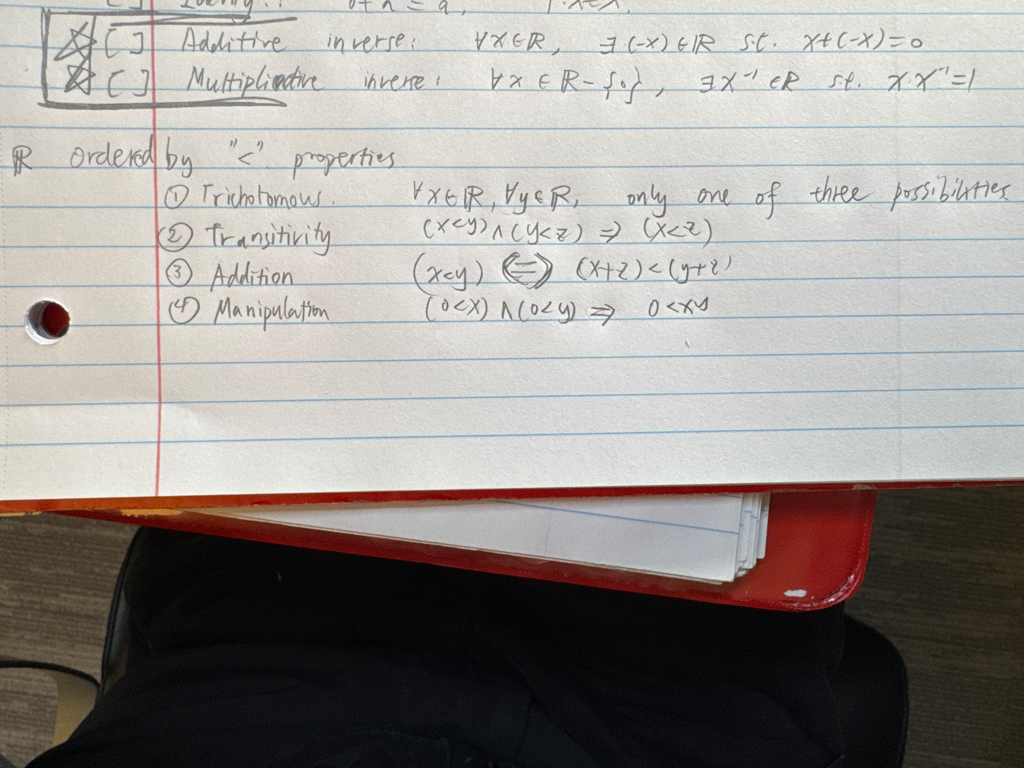 [ ] Identity: 0+a = a, 1·x=x.
[ ] Additive inverse: ∀x∈ℝ, ∃(-x)∈ℝ s.t. x+(-x)=0
[ ] Multiplicative inverse: ∀x ∈ ℝ-{0}, ∃x⁻¹ ∈ℝ s.t. x·x⁻¹=1
ℝ ordered by "<" properties
① Trichotomous. ∀x∈ℝ, ∀y∈ℝ, only one of three possibilities
② Transitivity (x<y)∧(y<z) ⇒ (x<z)
③ Addition (x<y) ⇔ (x+z)<(y+z)
④ Manipulation (0<x)∧(0<y) ⇒ 0<xy